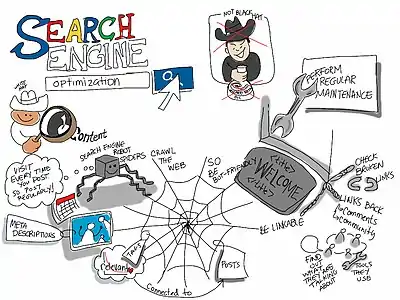 SEARCH
ENGINE
optimization
NOT BLACK HAT
WHITE
HAT
Content
PERFORM
REGULAR
MAINTENANCE
SEARCH ENGINE
ROBOT
SPIDERS
CRAWL
THE
WEB
SO
BE
BOT-FRIENDLY
<title>
WELCOME
<title>
VISIT
EVERY TIME
YOU POST
SO POST
REGULARLY!
CHECK
BROKEN
LINKS
LINKS BACK
COMMENTS
COMMUNITY
BE LINKABLE
META
DESCRIPTIONS
TAGS
relevant
POSTS
Connected to
FIND
OUT
WHAT ARE
THEY
TALKING
ABOUT
TOOLS
THEY
USE